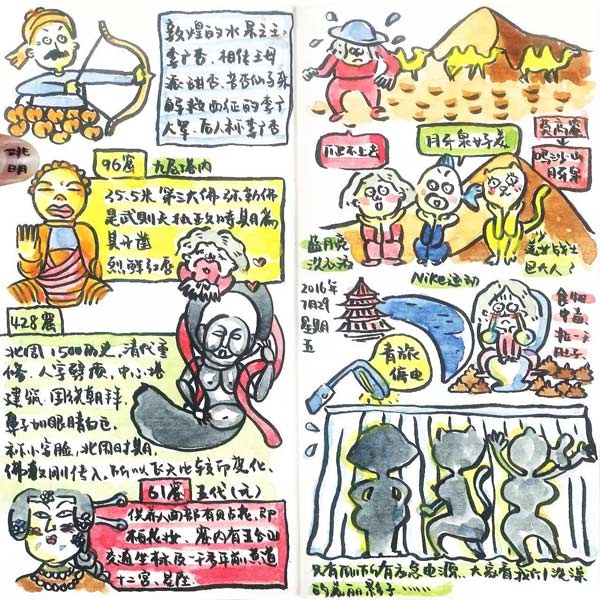 敦煌的水果之王,
李广杏,相传王母
派谢杏、苦杏仙子来
的救西征的李广
大军,后人称李广杏
姚明
96窟 九层塔内
35.5米 第三大佛 弥勒佛
是武则天执政时期为
其开凿
烈酵红唇
428窟
北周 1500历史,清代重
修,人字劈顶,中心塔
建筑,围绕朝拜
鼻子如眼睛白色
称小字脸,北周时期,
佛教刚传入,所以飞天比较印度化、
61窟 五代(元)
供养人面部有贝占花,即
梅花妆,窟内有五台山
交通坐标及一千多年前黄道
十二宫、星座
莫高窟
鸣沙山
月牙泉
爬不上去
月牙泉好美
蓝月亮
洗衣液
Nike运动
美少女战士
巴大人?
2016年
7月29
星期
五
青旅
停电
食物
中毒
拉一
肚子
只有厕所有应急电源、大家看我们洗澡
的美丽影子……